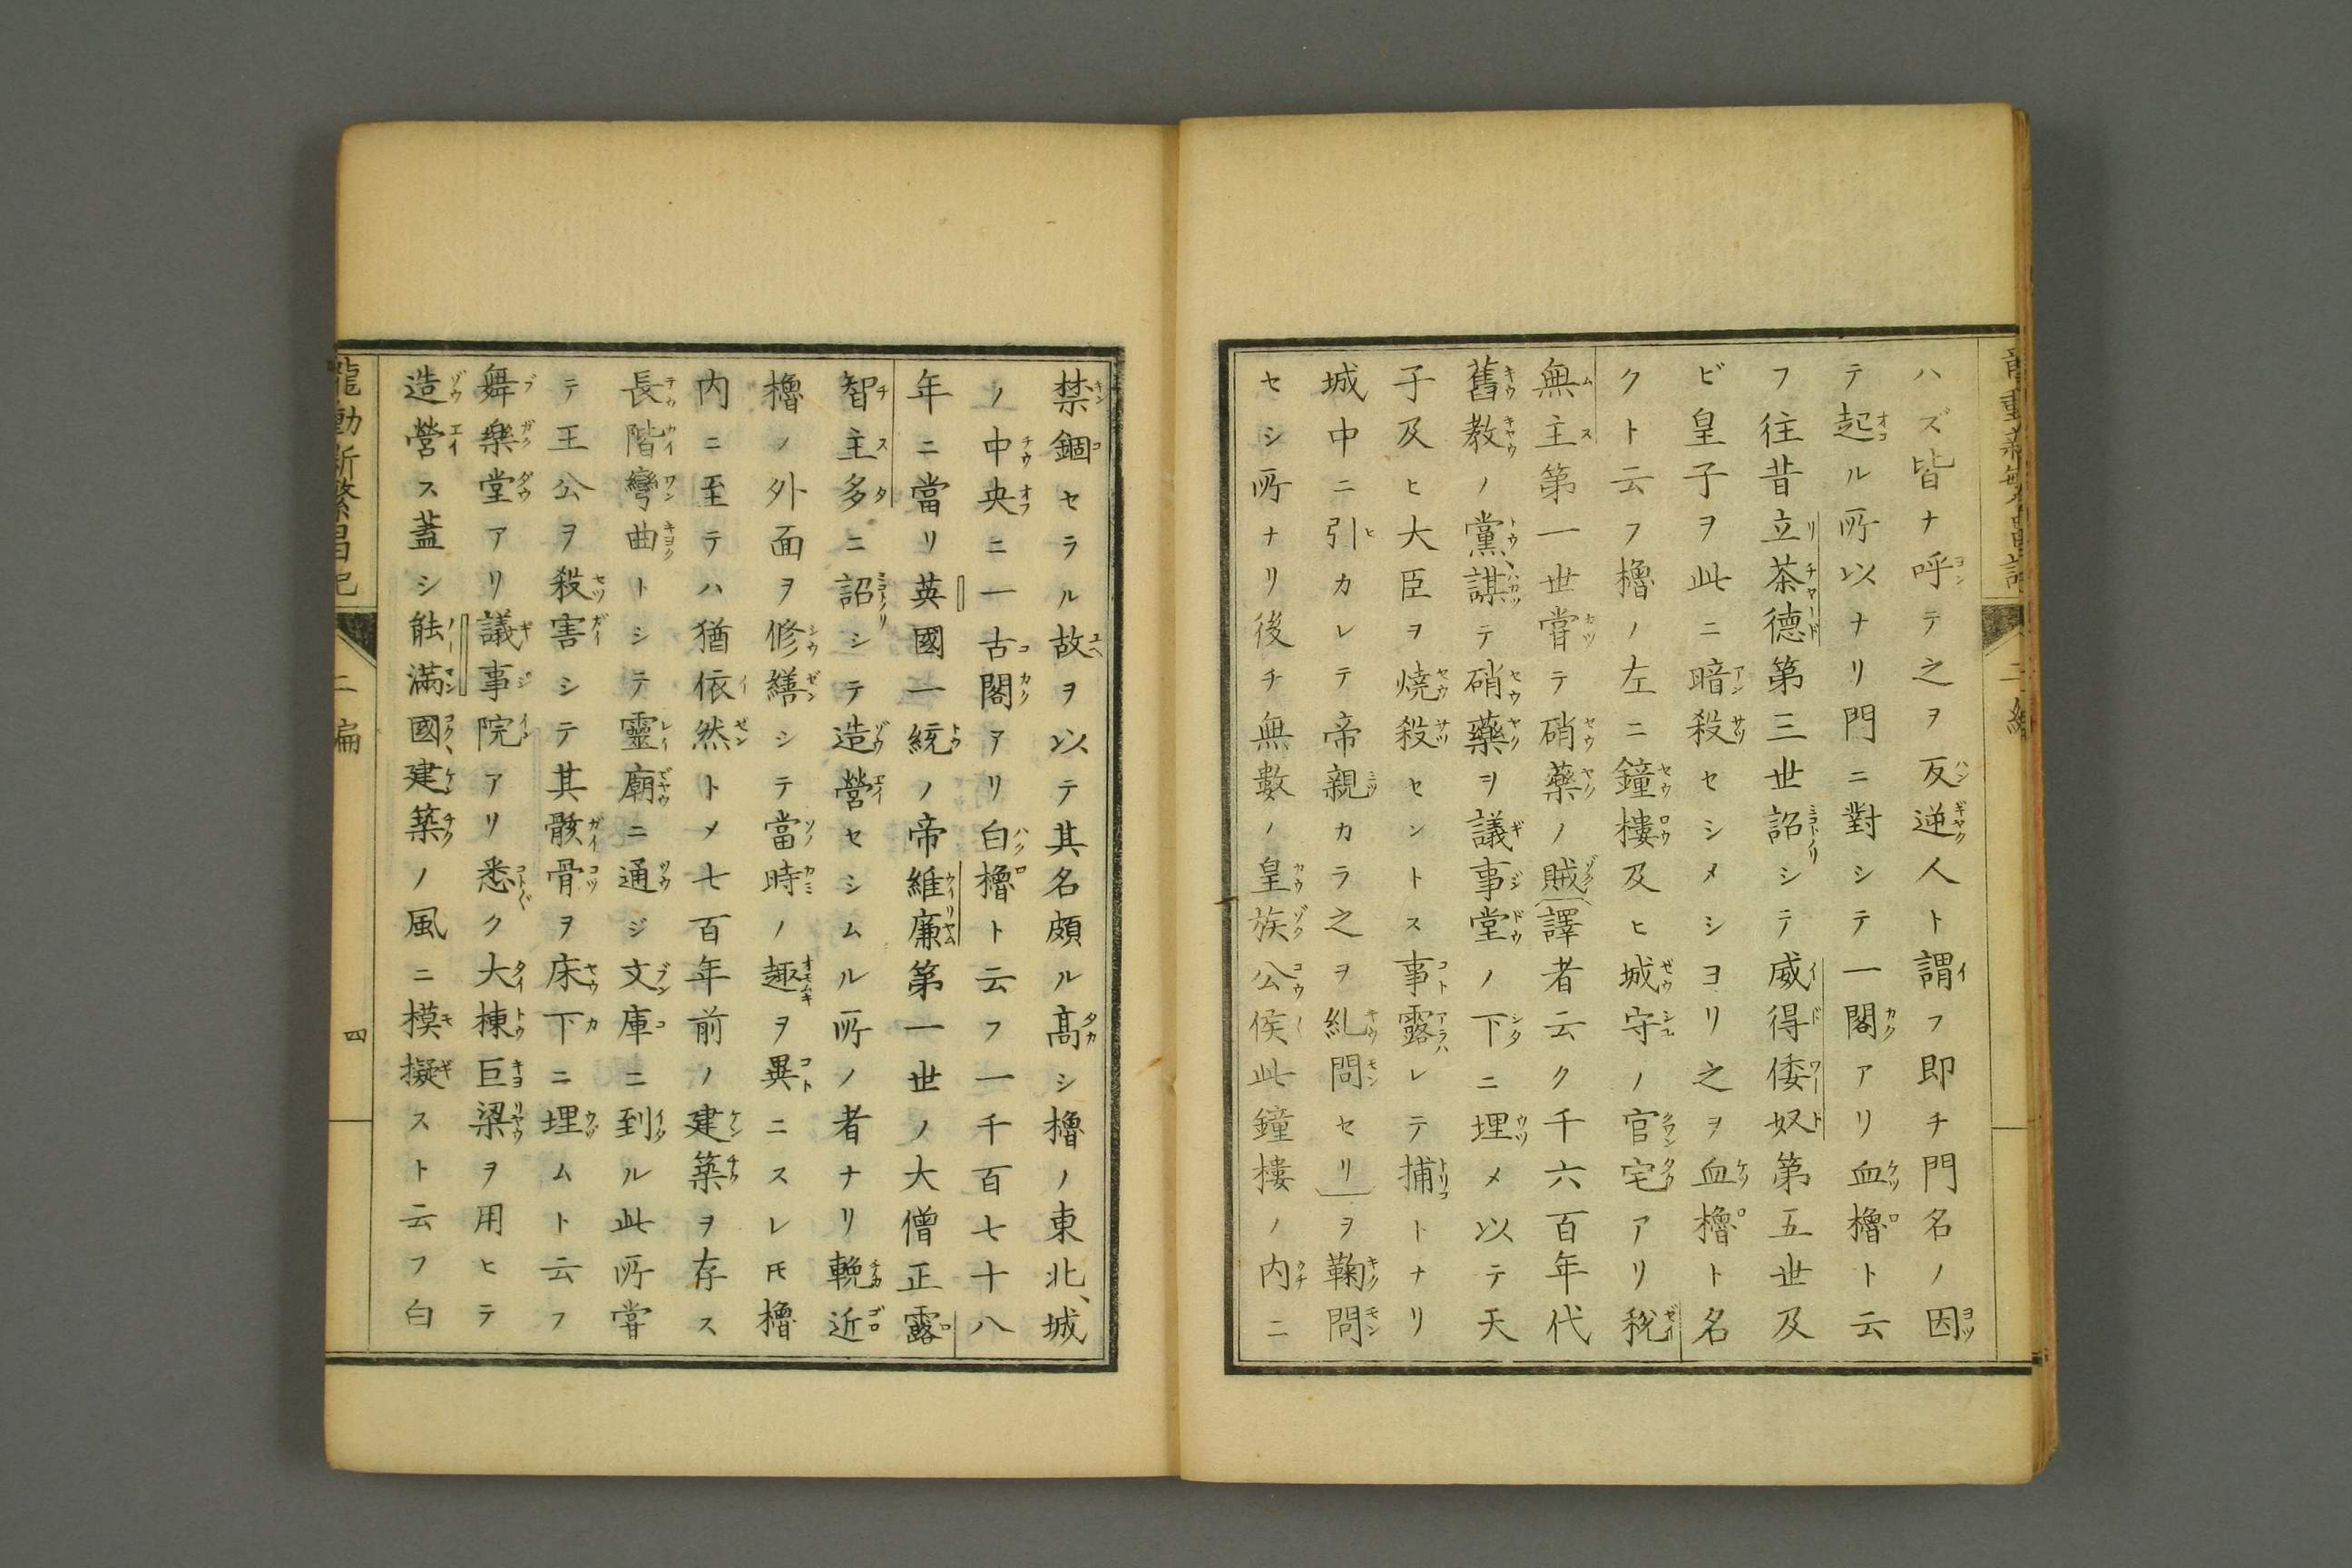 ハズ皆ナ呼テ之ヲ反逆人ト謂フ即チ門名ノ因
テ起ル所以ナリ門ニ對シテ一閣アリ血櫓ト云
フ往昔立茶德第三世詔シテ威得倭奴第五世及
ビ皇子ヲ此ニ暗殺セシメシヨリ之ヲ血櫓ト名
クト云フ櫓ノ左ニ鐘樓及ヒ城守ノ官宅アリ税
無主第一世嘗テ硝藥ノ賊(譯者云ク千六百年代
舊教ノ黨、謀テ硝藥ヲ議事堂ノ下ニ埋メ以テ天
子及ヒ大臣ヲ燒殺セントス事露レテ捕トナリ
城中ニ引カレテ帝親カラ之ヲ糺問セリ)ヲ鞠問
セシ所ナリ後チ無數ノ皇族公侯此鐘樓ノ内ニ
禁錮セラル故ヲ以テ其名頗ル高シ櫓ノ東北、城
ノ中央ニ一古閣アリ白櫓ト云フ一千百七十八
年ニ當リ英國一統ノ帝維廉第一世ノ大僧正露
智主多ニ詔シテ造營セシムル所ノ者ナリ輓近
櫓ノ外面ヲ修繕シテ當時ノ趣ヲ異ニスレ𪜈櫓
内ニ至テハ猶依然トメ七百年前ノ建築ヲ存ス
長階彎曲トシテ靈廟ニ通ジ文庫ニ到ル此所嘗
テ王公ヲ殺害シテ其骸骨ヲ床下ニ埋ムト云フ
舞樂堂アリ議事院アリ悉ク大棟巨梁ヲ用ヒテ
造營ス蓋シ能滿國、建築ノ風ニ模擬スト云フ白
龍動新繁昌記
二編
四